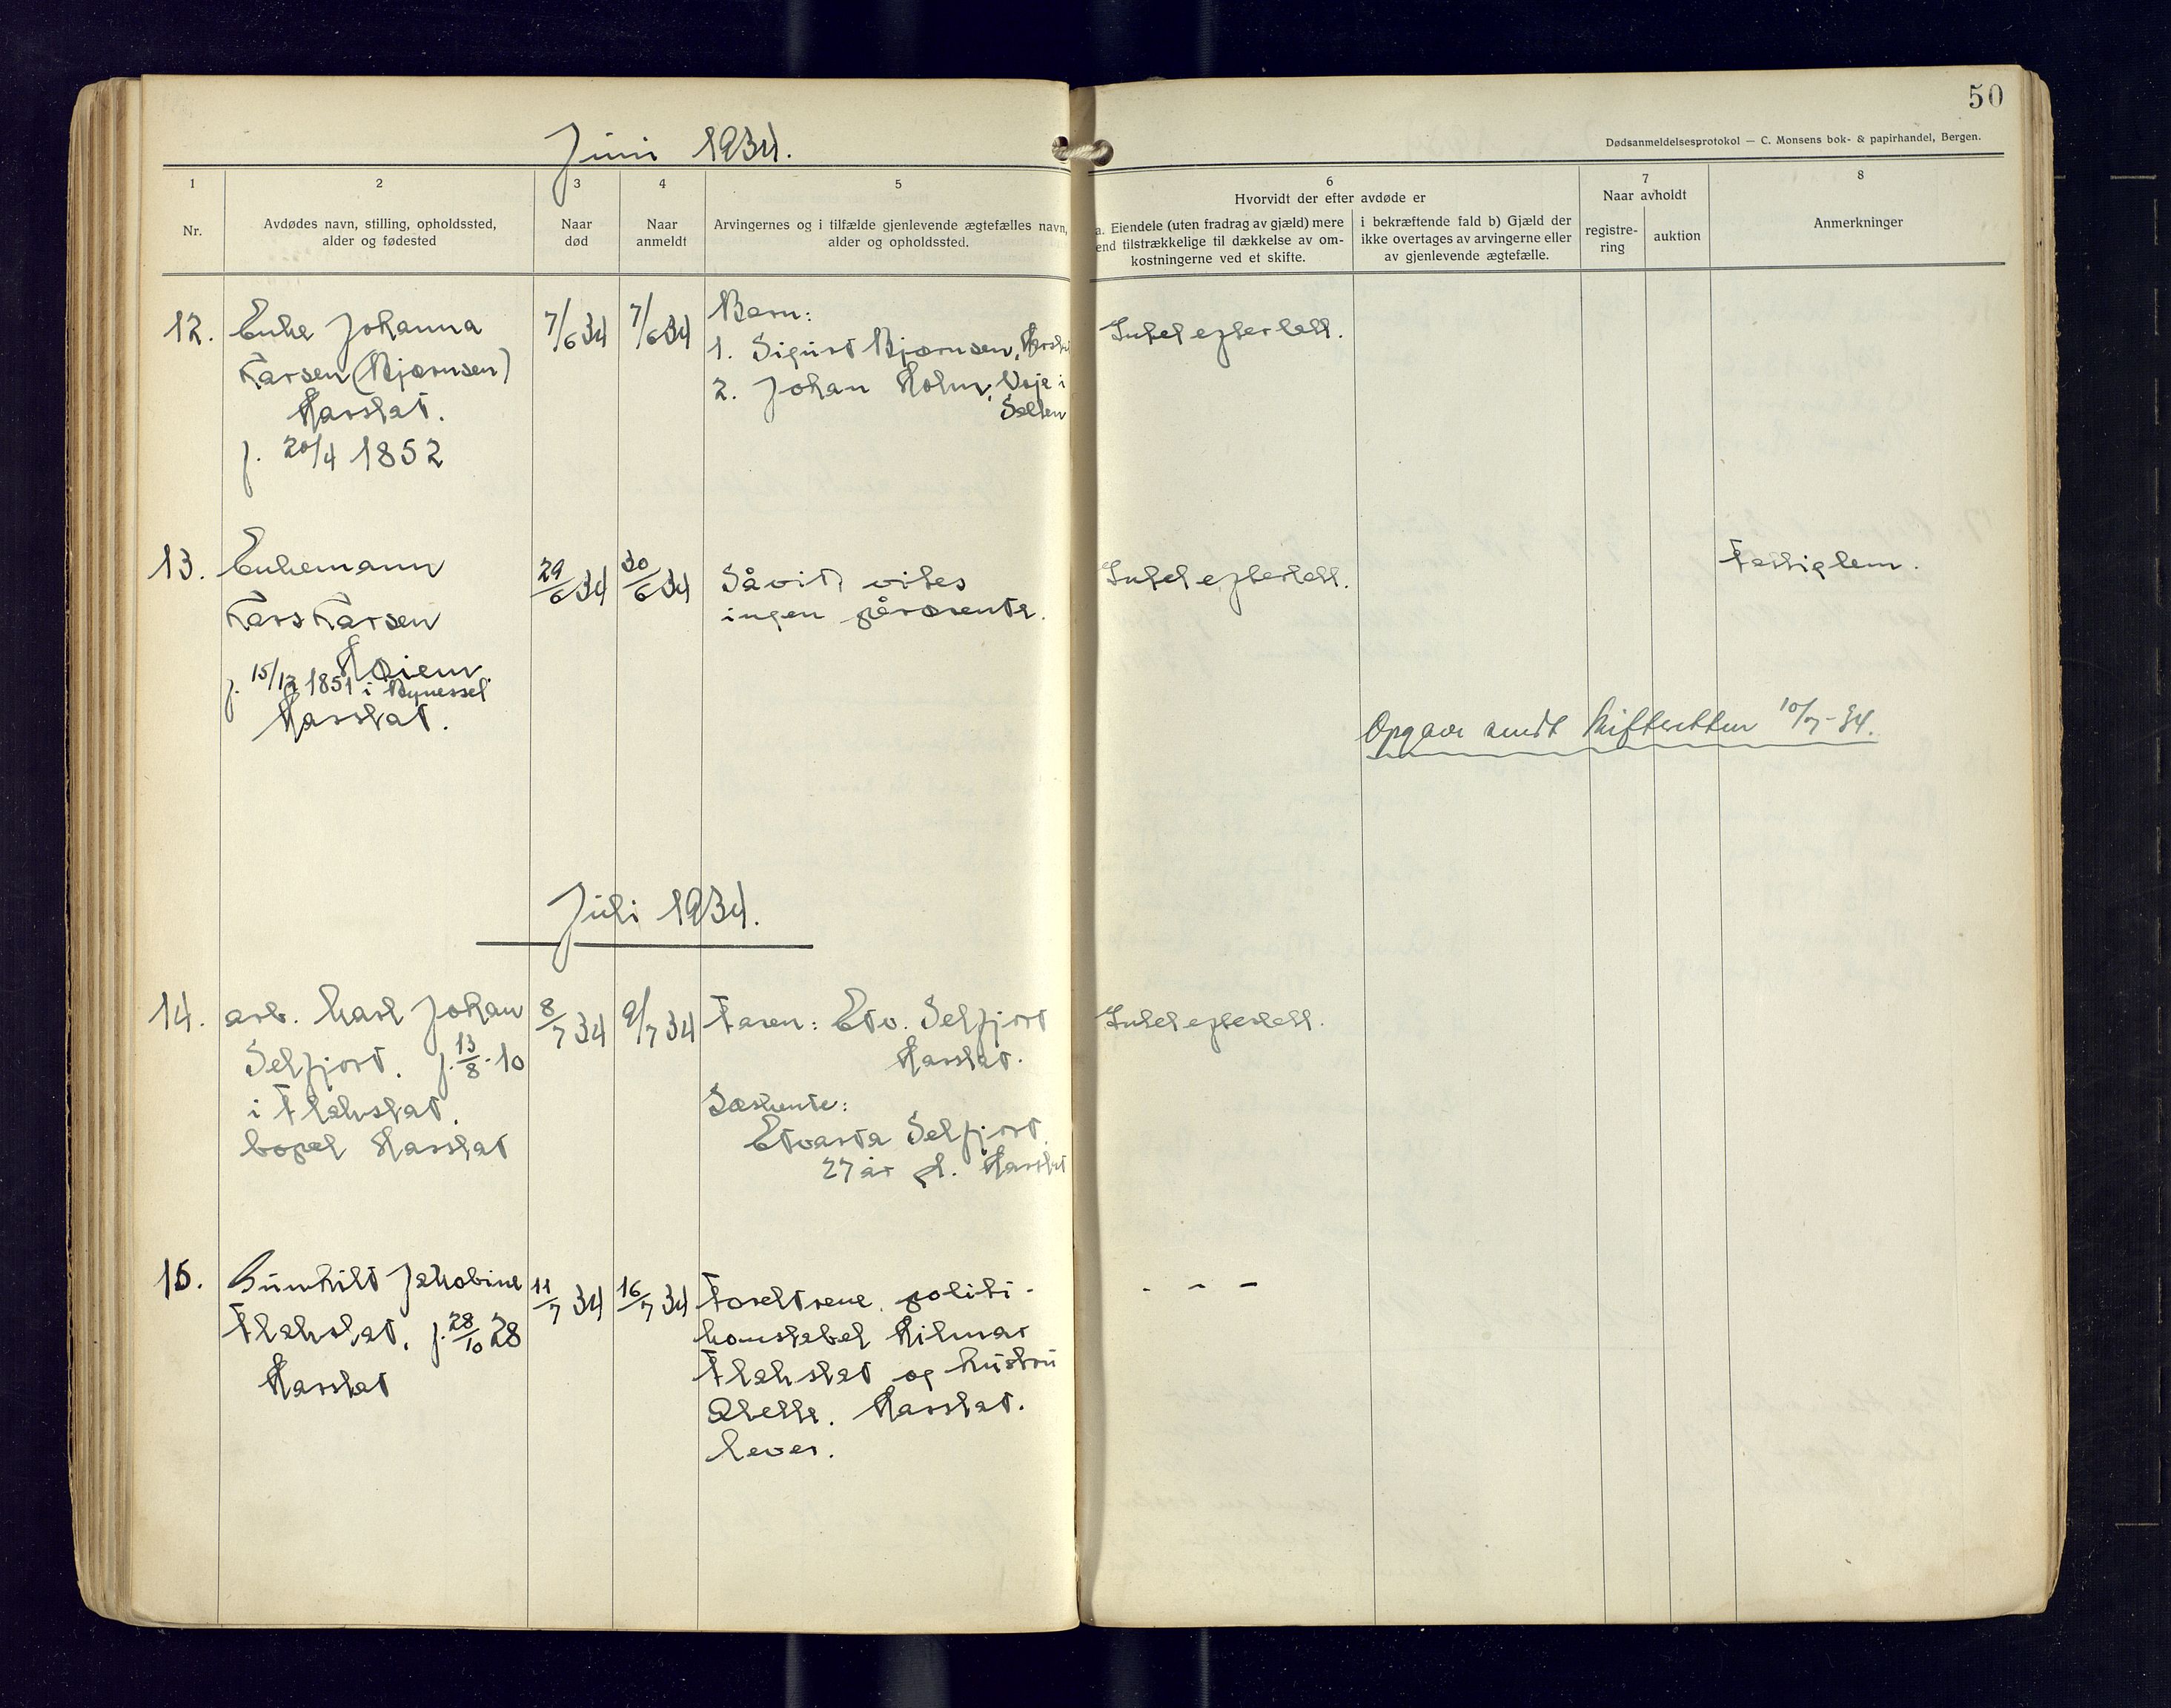 50
Dødsanmeldelsesprotokol — C. Monsens bok- & papirhandel, Bergen.
Juni 1934.
1
Nr.
2
Avdødes navn, stilling, opholdssted,
alder og fødested
3
Naar
død
4
Naar
anmeldt
5
Arvingernes og i tilfælde gjenlevende ægtefælles navn,
alder og opholdssted.
6
Hvorvidt der efter avdøde er
a. Eiendele (uten fradrag av gjæld) mere
end tilstrækkelige til dækkelse av om-
kostningerne ved et skifte.
i bekræftende fald b) Gjæld der
ikke overtages av arvingerne eller
av gjenlevende ægtefælle.
7
Naar avholdt
registre-
ring
auktion
8
Anmerkninger
12.
Enke Johanna
Larsen (Bjørnsen)
Harstad.
f. 20/4 1852
7/6 34
7/6 34
Barn:
1. Sigurd Bjørnsen, Harstad
2. Johan Holm,
Salten
Intet efterlatt.
13.
Enkemann
Lars Larsen
Moien.
f. 15/12 1851 i Bynesset
Harstad.
29/6 34
30/6 34
Såvidt vites
ingen pårørente.
Intet efterlatt.
Fattiglem.
Opgave sendt skifteretten 10/7-34.
Juli 1934.
14.
arb. Karl Johan
Selfjord. f. 13/8-10
i Flakstad.
bopel Harstad
8/7 34
9/7 34
Faren: Edv. Selfjord
Harstad.
Søskente:
Edvarda Selfjord
27 år pl. Harstad
Intet efterlatt.
15.
Gunhild Jakobine
Flakstad. f. 28/10 28
Harstad
11/7 34
16/7 34
Foreldrene, politi-
konstabel Hilmar
Flakstad og hustru
Harstad.
lever.
- - -